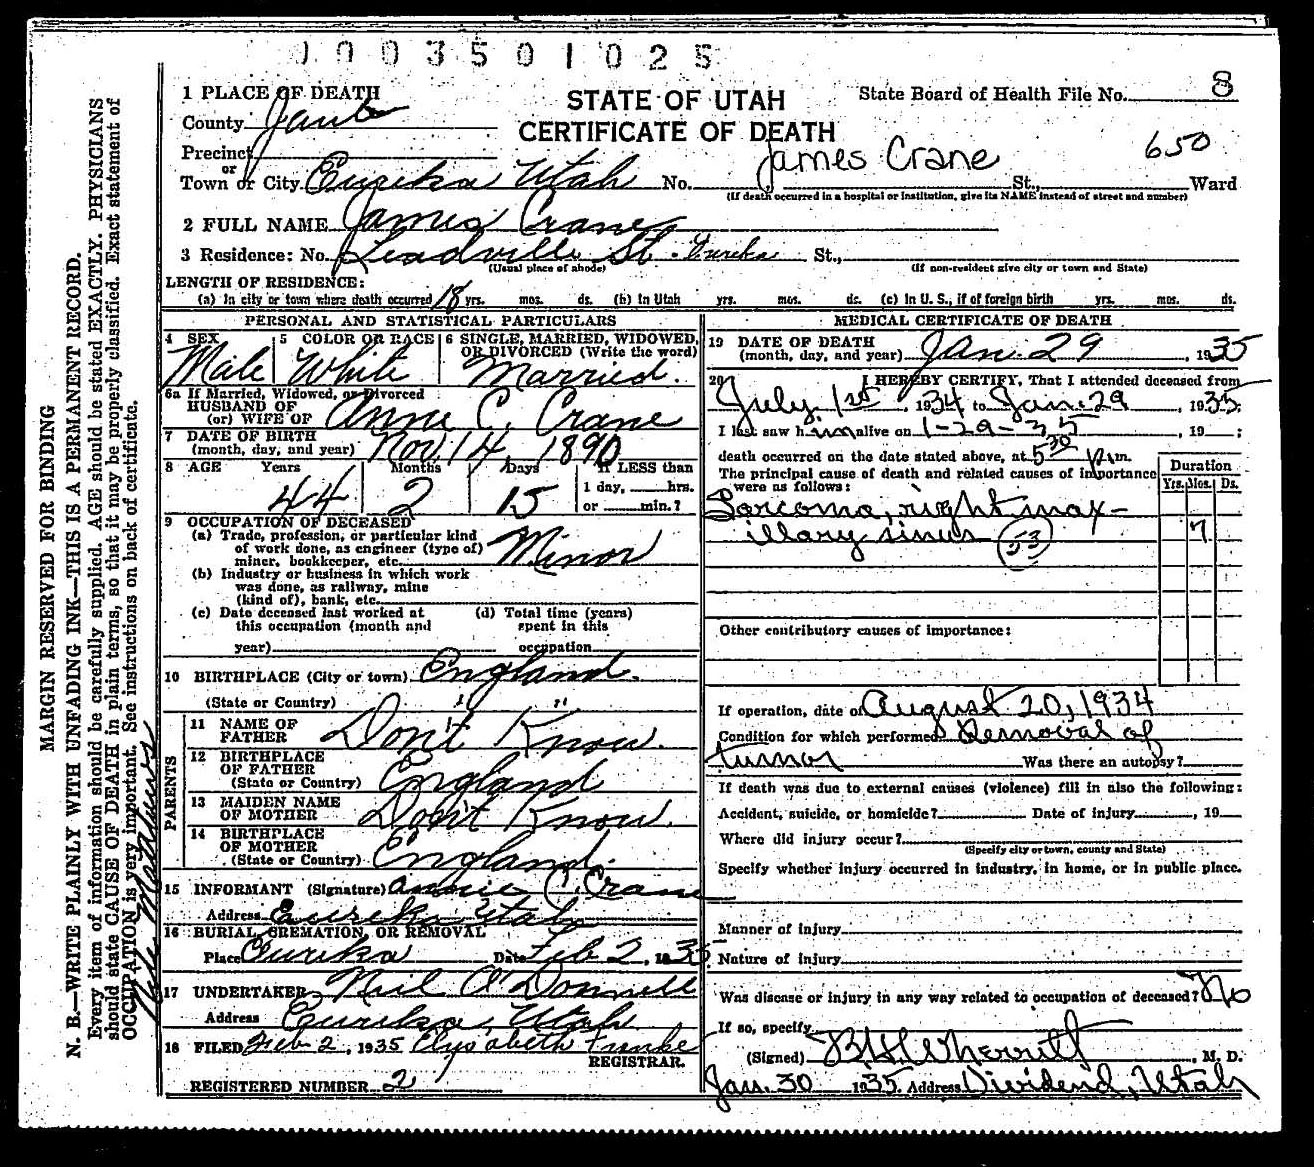 0003501025
1 PLACE OF DEATH
STATE OF UTAH
CERTIFICATE OF DEATH
State Board of Health File No. 8
County Jaub
Precinct
or
Town or City Eureka Utah No. James Crane St., 650 Ward
(If death occurred in a hospital or institution, give its NAME instead of street and number)
2 FULL NAME James Crane
3 Residence: No. Leadville St. Eureka St.,
(Usual place of abode) (If non-resident give city or town and State)
LENGTH OF RESIDENCE:
(a) In city or town where death occurred 18 yrs. mos. ds. (b) In Utah yrs. mos. ds. (c) In U. S., if of foreign birth yrs. mos. ds.
PERSONAL AND STATISTICAL PARTICULARS
4 SEX Male
5 COLOR OR RACE White
6 SINGLE, MARRIED, WIDOWED, OR DIVORCED (Write the word) Married.
6a If Married, Widowed, or Divorced
HUSBAND OF
(or) WIFE OF Anne C. Crane
7 DATE OF BIRTH
(month, day, and year) Nov. 14, 1890
8 AGE Years Months Days If LESS than
44 2 15 1 day, hrs.
or min.?
9 OCCUPATION OF DECEASED
(a) Trade, profession, or particular kind
of work done, as engineer (type of)
miner, bookkeeper, etc. Minor
(b) Industry or business in which work
was done, as railway, mine
(kind of), bank, etc.
(c) Date deceased last worked at
this occupation (month and
year)
(d) Total time (years)
spent in this
occupation
10 BIRTHPLACE (City or town) England.
(State or Country) " "
PARENTS
11 NAME OF
FATHER Don't Know.
12 BIRTHPLACE
OF FATHER
(State or Country) England
13 MAIDEN NAME
OF MOTHER Don't Know.
14 BIRTHPLACE
OF MOTHER
(State or Country) England.
15 INFORMANT (Signature) Annie C. Crane
Address Eureka Utah
16 BURIAL, CREMATION, OR REMOVAL
Place Eureka Date Feb 2, 1935
17 UNDERTAKER Neil O'Donnell
Address Eureka, Utah
18 FILED Feb 2, 1935 Elysabeth Franke
REGISTRAR.
REGISTERED NUMBER 2
MEDICAL CERTIFICATE OF DEATH
19 DATE OF DEATH
(month, day, and year) Jan. 29, 1935
20 I HEREBY CERTIFY, That I attended deceased from
July 1st, 1934 to Jan. 29, 1935;
I last saw him alive on 1-29-35, 19 ;
death occurred on the date stated above, at 5 30 p.m.
The principal cause of death and related causes of importance
were as follows:
Duration
Yrs. Mos. Ds.
Sarcoma, right max-
illary sinus 53 7
Other contributory causes of importance:
If operation, date of August 20, 1934
Condition for which performed Removal of
tumor Was there an autopsy?
If death was due to external causes (violence) fill in also the following:
Accident, suicide, or homicide? Date of injury , 19
Where did injury occur?
(Specify city or town, county and State)
Specify whether injury occurred in industry, in home, or in public place.
Manner of Injury
Nature of Injury
Was disease or injury in any way related to occupation of deceased? No
If so, specify
(Signed) , M. D.
Jan. 30 1935. Address Dividend, Utah
MARGIN RESERVED FOR BINDING
N. B.—WRITE PLAINLY WITH UNFADING INK—THIS IS A PERMANENT RECORD.
Every item of information should be carefully supplied. AGE should be stated EXACTLY. PHYSICIANS
should state CAUSE OF DEATH in plain terms, so that it may be properly classified. Exact statement of
OCCUPATION is very important. See instructions on back of certificate.